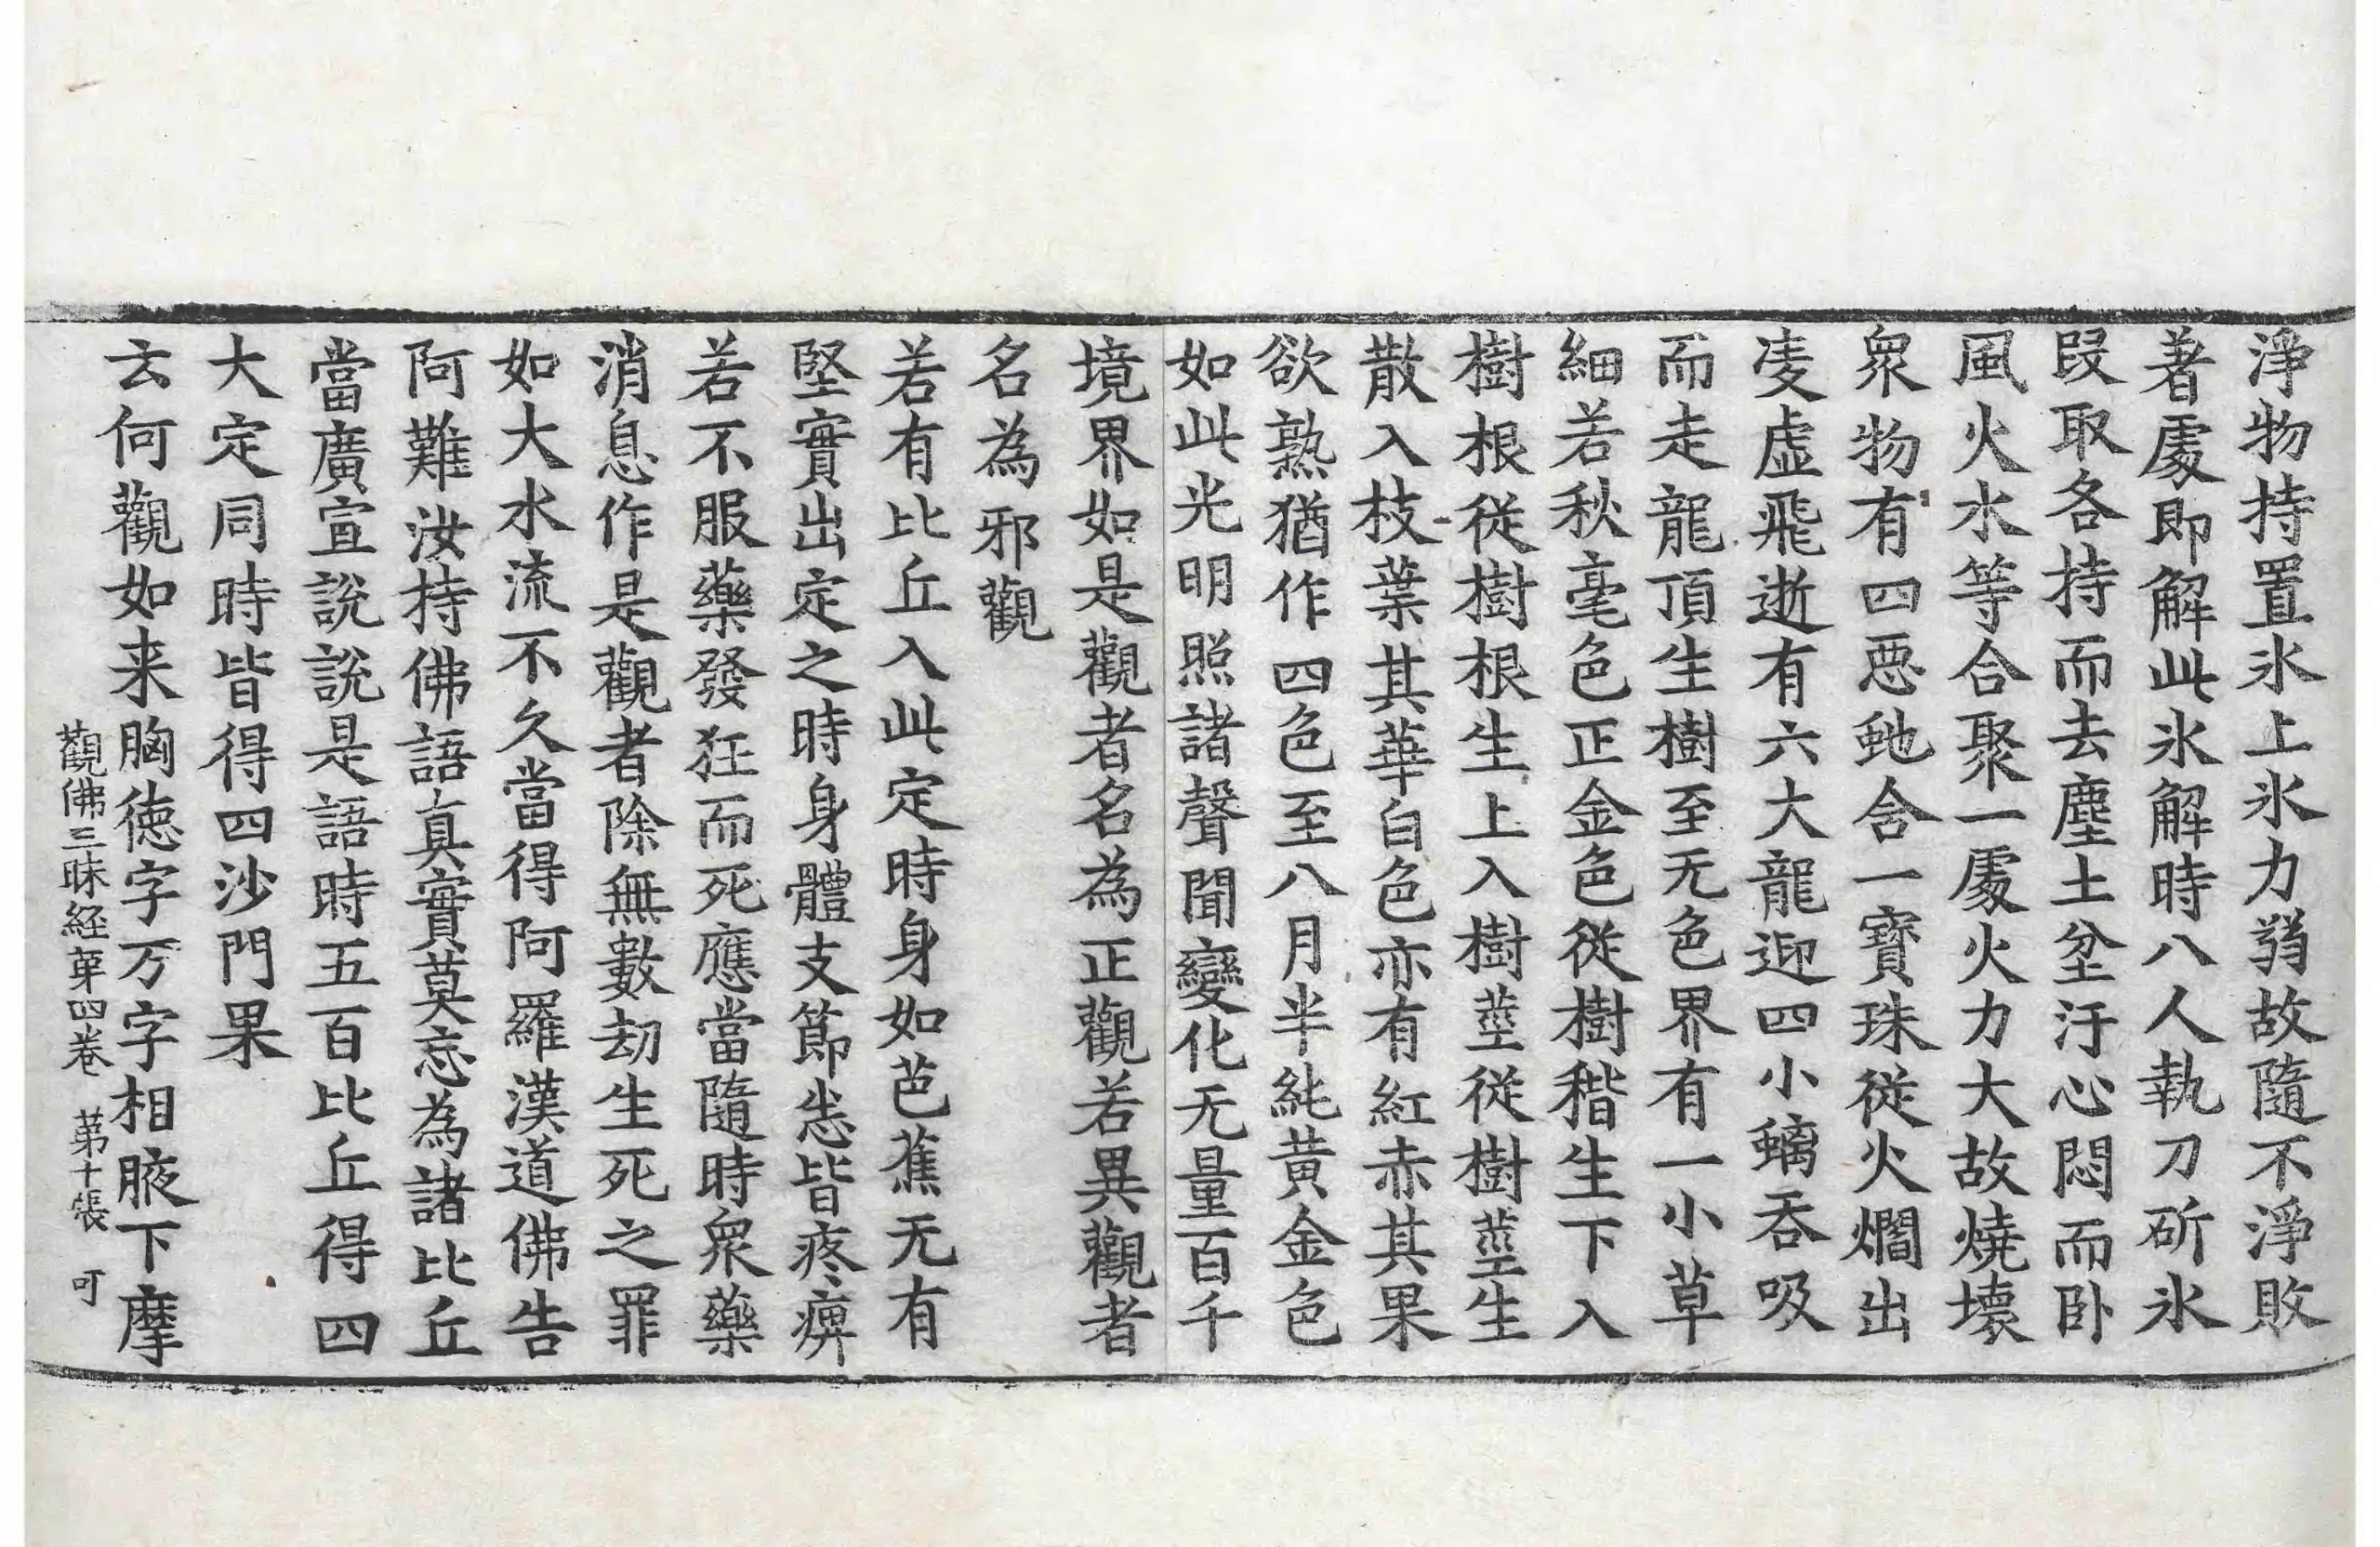 淨物持置氷上氷力弱故隨不淨敗
著處即解此氷解時八人執刀斫氷
段取各持而去塵土坌汙心悶而卧
風火水等合聚一處火力大故燒壞
衆物有四惡虵含一寶珠從火爓出
凌虛飛逝有六大龍迎四小螭吞吸
而走龍頂生樹至无色界有一小草
細若秋毫色正金色從樹稭生下入
樹根從樹根生上入樹莖從樹莖生
散入枝葉其華白色亦有紅赤其果
欲熟猶作四色至八月半純黃金色
如此光明照諸聲聞變化无量百千
境界如是觀者名為正觀若異觀者
名為邪觀
若有比丘入此定時身如芭蕉无有
堅實出定之時身體支節悉皆疼痹
若不服藥發狂而死應當隨時衆藥
消息作是觀者除無數劫生死之罪
如大水流不久當得阿羅漢道佛告
阿難汝持佛語真實莫忘為諸比丘
當廣宣說說是語時五百比丘得四
大定同時皆得四沙門果
云何觀如来胸徳字万字相腋下摩
觀佛三昧経苐四卷 苐十張 可